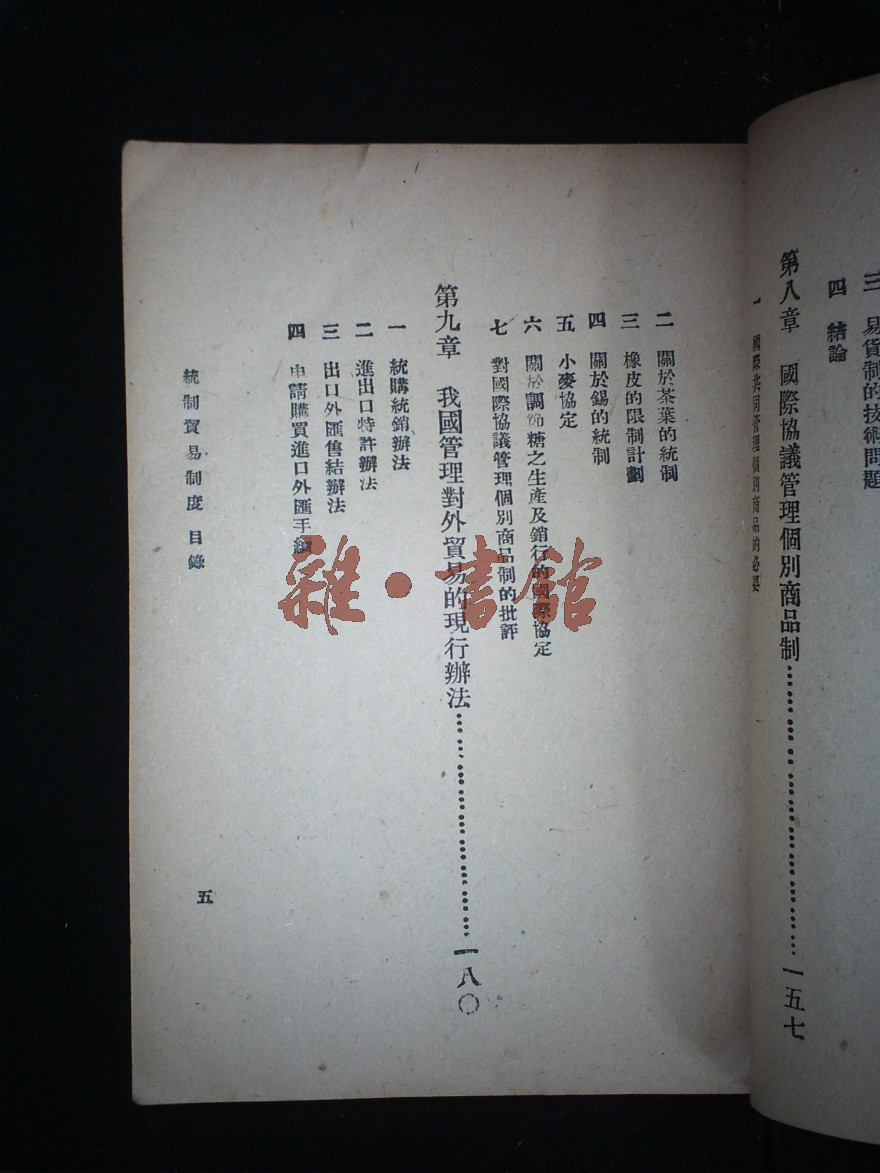 三 易貨制的技術問題
四 結論
第八章 國際協議管理個別商品制……………………一五七
一 國際共同管理個別商品的必要
二 關於茶葉的統制
三 橡皮的限制計劃
四 關於錫的統制
五 小麥協定
六 關於調節糖之生產及銷行的國際協定
七 對國際協議管理個別商品制的批評
第九章 我國管理對外貿易的現行辦法……………………一八〇
一 統購統銷辦法
二 進出口特許辦法
三 出口外匯售結辦法
四 申請購買進口外匯手續
統制貿易制度 目錄
五
雜·書館